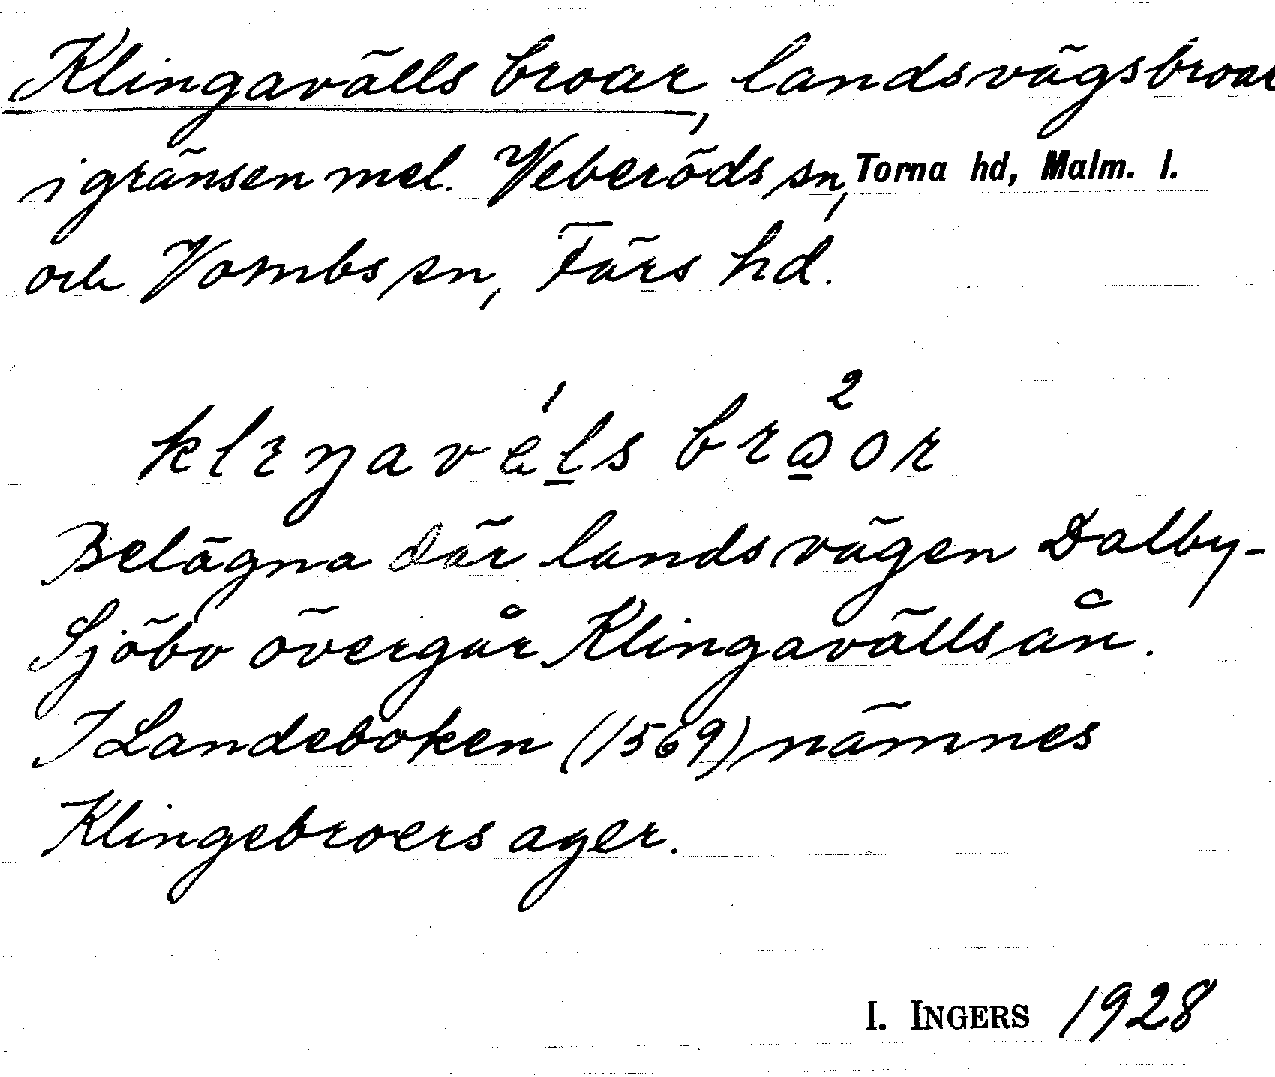 Klingavälls broar, landsvägsbroar
i gränsen mel. Veberöds sn, Torna hd, Malm. l.
och Vombs sn, Färs hd.
Belägna där landsvägen Dalby-
Sjöbo övergår Klingavälls ån.
I Landeboken (1569) nämnes
Klingebroers ager.
I. INGERS 1928